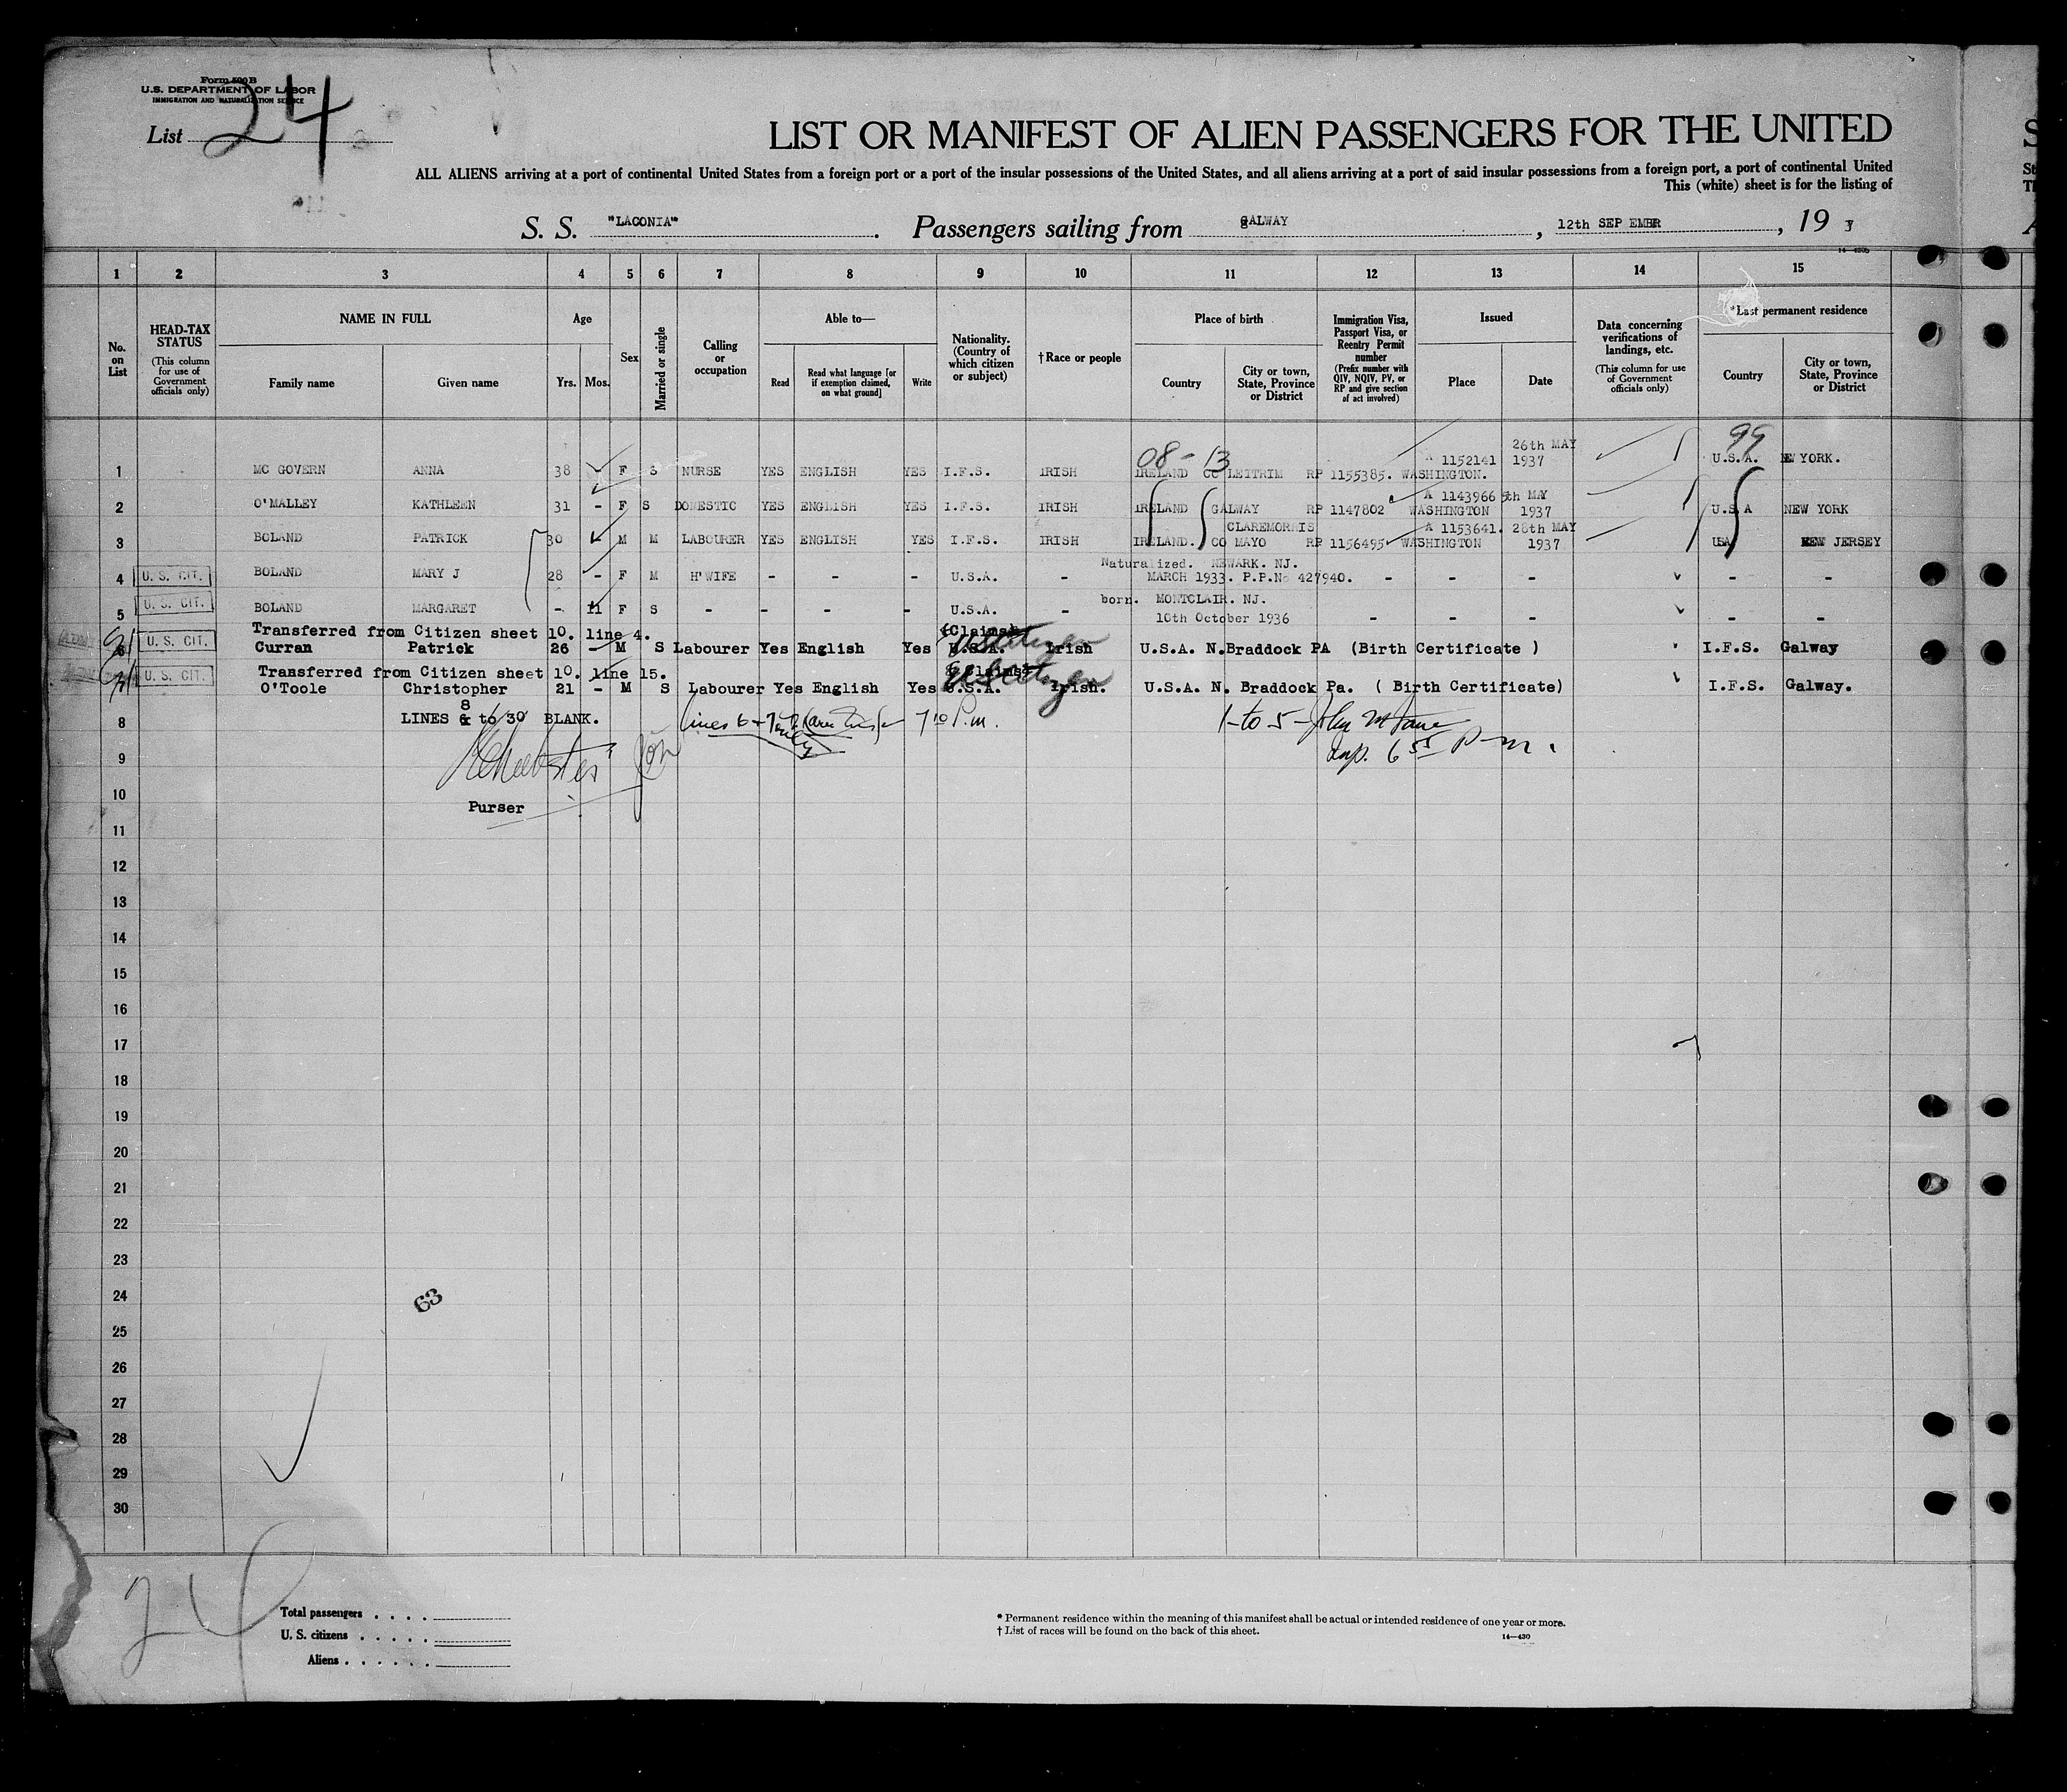 Form 500 B
U.S. DEPARTMENT OF LABOR
IMMIGRATION AND NATURALIZATION SERVICE
List 24
LIST OR MANIFEST OF ALIEN PASSENGERS FOR THE UNITED
ALL ALIENS arriving at a port of continental United States from a foreign port or a port of the insular possessions of the United States, and all aliens arriving at a port of said insular possessions from a foreign port, a port of continental United
This (white) sheet is for the listing of
S. S. "LACONIA". Passengers sailing from GALWAY, 12th SEP EMBR, 19 7
14-430b
1 2 3 4 5 6 7 8 9 10 11 12 13 14 15
No. on List
HEAD-TAX STATUS (This column for use of Government officials only)
NAME IN FULL
Family name
Given name
Age
Yrs. Mos.
Sex
Married or single
Calling or occupation
Able to—
Read
Read what language [or if exemption claimed, on what ground]
Write
Nationality. (Country of which citizen or subject)
† Race or people
Place of birth
Country
City or town, State, Province or District
Immigration Visa, Passport Visa, or Reentry Permit number (Prefix number with QIV, NQIV, PV, or RP and give section of act involved)
Issued
Place
Date
Data concerning verifications of landings, etc. (This column for use of Government officials only)
*Last permanent residence
Country
City or town, State, Province or District
08- 13 26th MAY 99
1 MC GOVERN ANNA 38 F S NURSE YES ENGLISH YES I.F.S. IRISH IRELAND CO LEITRIM RP 1155385. A 1152141 WASHINGTON. 1937 U.S.A. NEW YORK.
2 O'MALLEY KATHLEEN 31 - F S DOMESTIC YES ENGLISH YES I.F.S. IRISH IRELAND GALWAY RP 1147802 A 1143966 WASHINGTON 5th MAY 1937 U.S.A NEW YORK
3 BOLAND PATRICK 30 M M LABOURER YES ENGLISH YES I.F.S. IRISH IRELAND. CLAREMORRIS CO MAYO RP 1156495 A 1153641. WASHINGTON 28th MAY 1937 USA NEW JERSEY
4 U. S. CIT. BOLAND MARY J 28 - F M H'WIFE - - - U.S.A. - Naturalized. NEWARK. NJ. MARCH 1933. P.P.No 427940. - - - - -
5 U. S. CIT. BOLAND MARGARET - 11 F S - - - - U.S.A. - born. MONTCLAIR. NJ. 10th October 1936 - - - - -
Transferred from Citizen sheet 10. line 4. (Claims)
6 U. S. CIT. Curran Patrick 26 - M S Labourer Yes English Yes U.S.A. US Citizen Irish U.S.A. N.Braddock PA (Birth Certificate ) I.F.S. Galway
Transferred from Citizen sheet 10. line 15. (Claims)
7 U. S. CIT. O'Toole Christopher 21 - M S Labourer Yes English Yes U.S.A. US Citizen Irish. U.S.A. N. Braddock Pa. ( Birth Certificate) I.F.S. Galway.
8 LINES 8 to 30 BLANK. lines 6 + 7 only 7 10 P.m. 1 - to 5 - John
9 Insp. 6 55 p.m.
10 Purser
11
12
13
14
15
16
17
18
19
20
21
22
23
24 63
25
26
27
28
29
30
24
Total passengers
U. S. citizens
Aliens
* Permanent residence within the meaning of this manifest shall be actual or intended residence of one year or more.
† List of races will be found on the back of this sheet.
14—430